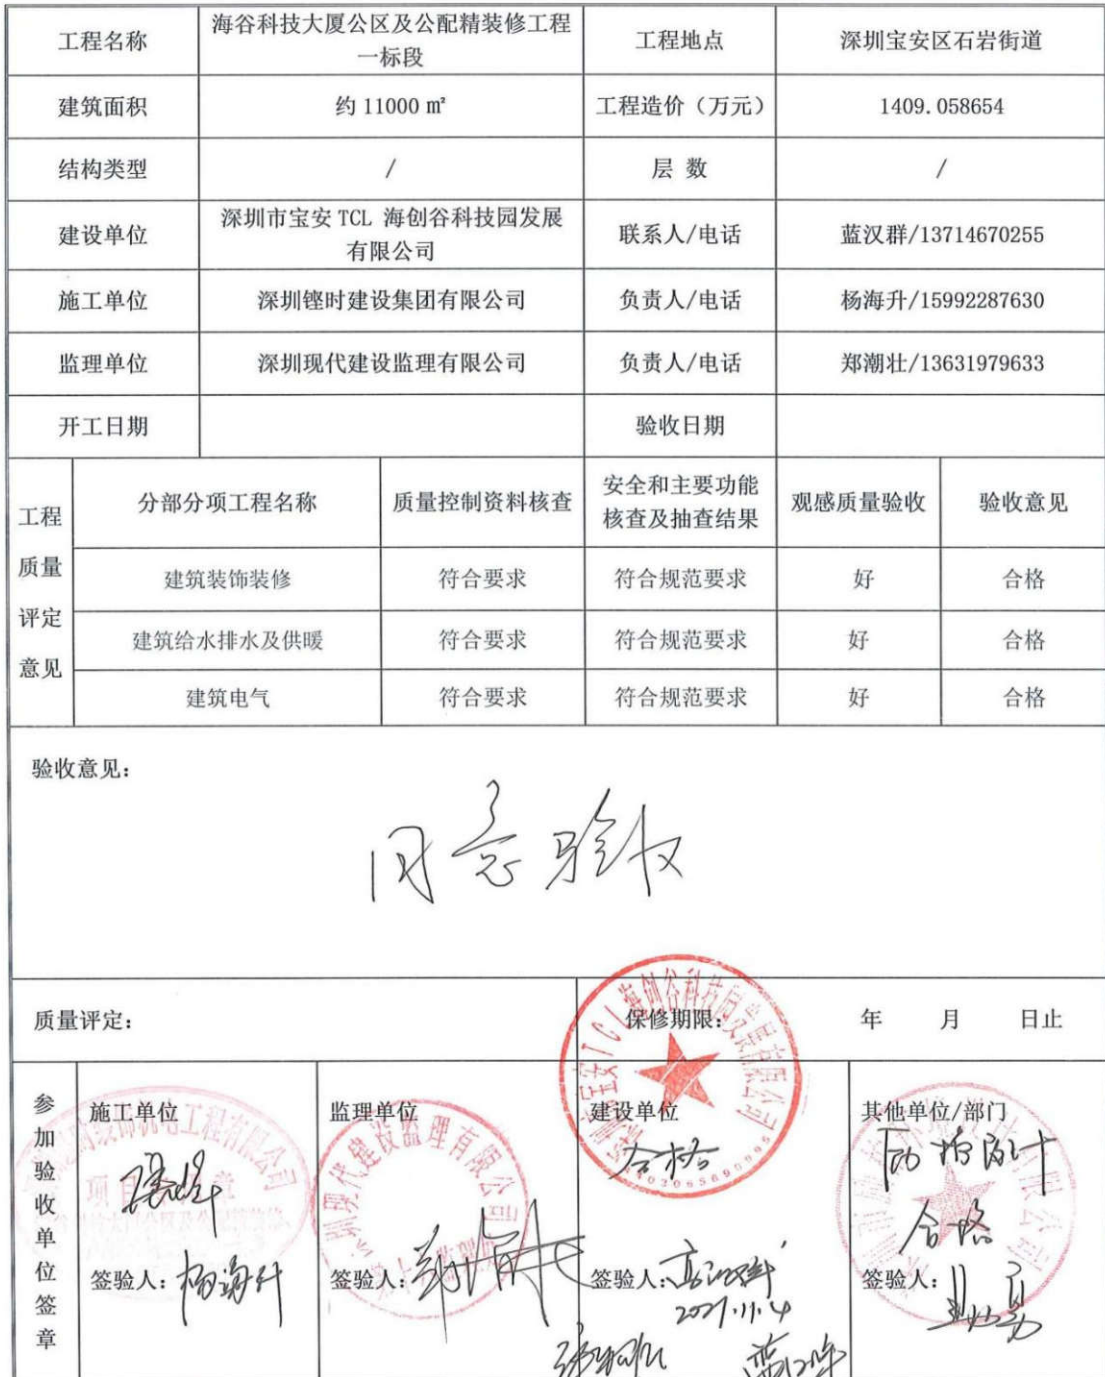 工程名称 海谷科技大厦公区及公配精装修工程 工程地点 深圳宝安区石岩街道
一标段
建筑面积 约 11000 ㎡ 工程造价（万元） 1409.058654
结构类型 / 层 数 /
建设单位 深圳市宝安 TCL 海创谷科技园发展 联系人/电话 蓝汉群/13714670255
有限公司
施工单位 深圳铿时建设集团有限公司 负责人/电话 杨海升/15992287630
监理单位 深圳现代建设监理有限公司 负责人/电话 郑潮壮/13631979633
开工日期 验收日期
工程
质量
评定
意见
分部分项工程名称 质量控制资料核查 安全和主要功能 观感质量验收 验收意见
核查及抽查结果
建筑装饰装修 符合要求 符合规范要求 好 合格
建筑给水排水及供暖 符合要求 符合规范要求 好 合格
建筑电气 符合要求 符合规范要求 好 合格
验收意见：
同意验收
质量评定： 保修期限： 年 月 日止
参加验收单位签章
施工单位 监理单位 建设单位 其他单位/部门
合格
合格
签验人：杨海升 签验人： 签验人： 签验人：
2021.11.4